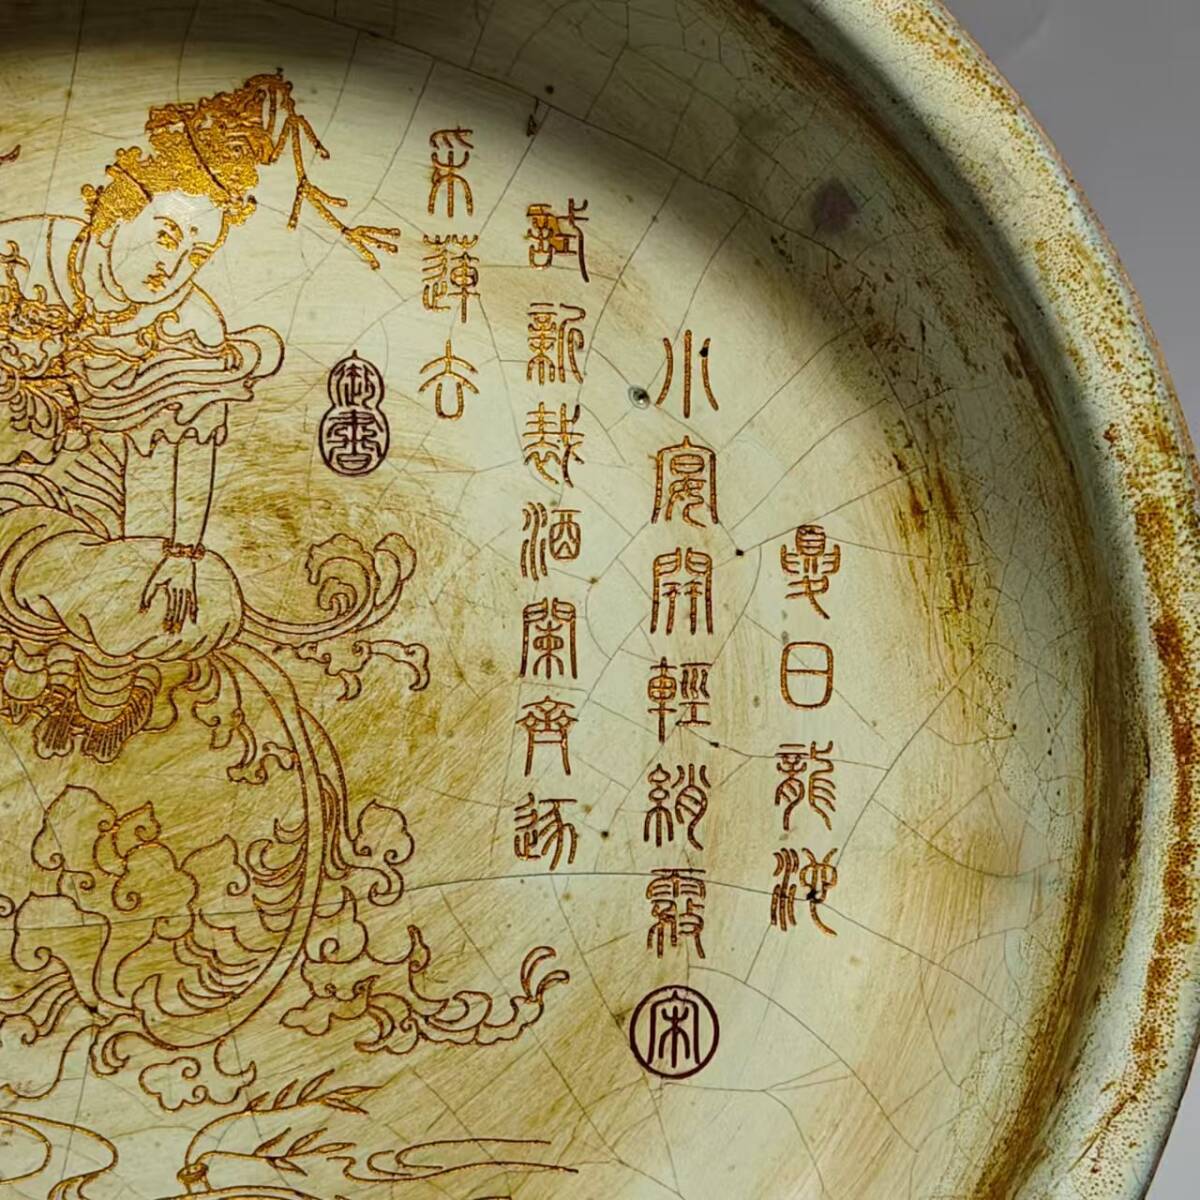 夏日龍池
小宴開輕綃霧
試新裁酒闌齊逐
采蓮去
宋
御書